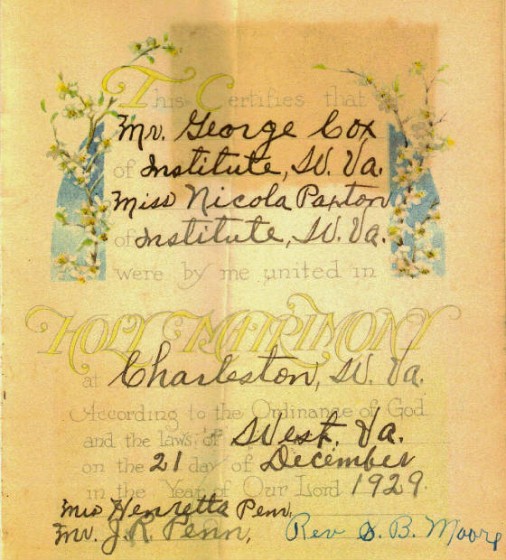 This Certifies that
Mr. George Cox
of Institute, W. Va.
Miss Nicola Paxton
of Institute, W. Va.
were by me united in
HOLY MATRIMONY
at Charleston, W. Va.
According to the Ordinance of God
and the laws of West. Va.
on the 21 day of December
in the Year of Our Lord 1929.
Mrs Henretta Penn,
Mr. J. R. Penn, Rev S. B. Moore